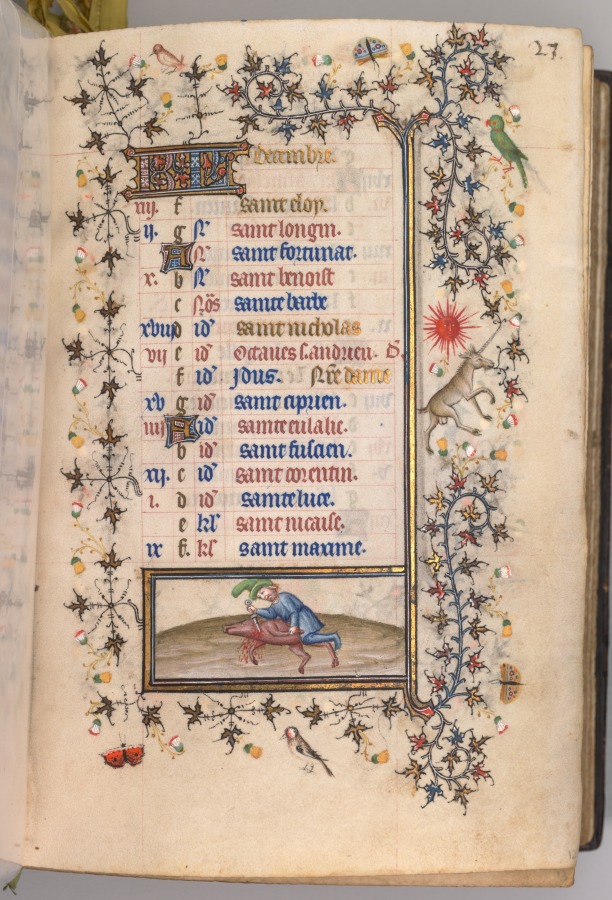 27.
KL Decembre.
xiij. f saint eloy.
ij. g N saint longin.
A N saint fortunat.
x. b N saint benoist
c Nōs sainte barbe
xviij d id saint nicholas
vij e id Octaues s. andrieu.
f id Jdus. Nr̄e dame
xv g id saint ciprien.
iiij A id sainte eulalie.
b id saint fuscien.
xij. c id saint corentin.
i. d id sainte luce.
e kl saint nicaise.
ix f. kl saint maxime.